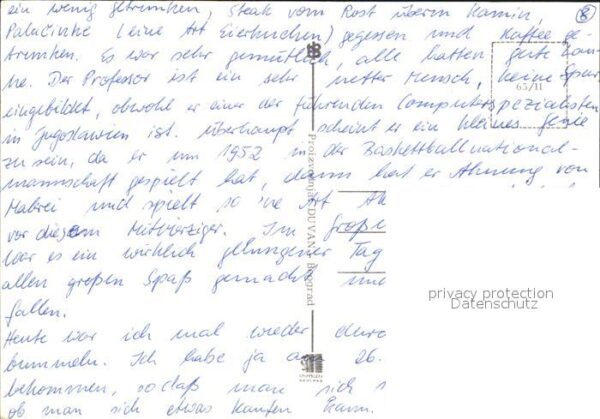 ein wenig getrunken, Steak vom Rost überm Kamin,
Palačinke (eine Art Eierkuchen) gegessen und Kaffee ge-
trunken. Es war sehr gemütlich, alle hatten gute Lau-
ne. Der Professor ist ein sehr netter Mensch, keine Spur
eingebildet, obwohl er einer der führenden Computerspezialisten
in Jugoslawien ist. Überhaupt scheint er ein kleines Genie
zu sein, da er um 1952 in der Baskettballnational-
mannschaft gespielt hat, dann hat er Ahnung von
Malerei und spielt so 'ne Art
vor diesem Mittvierziger. Im große
War es ein wirklich gelungener Tag
allen großen Spaß gemacht und
fallen.
Heute war ich mal wieder durc
bummeln. Ich habe ja am 26.
bekommen, sodaß man sich
ob man sich etwas kaufen kann.
8
65/II
Proizvodnja DUVAN Beograd
privacy protection
Datenschutz